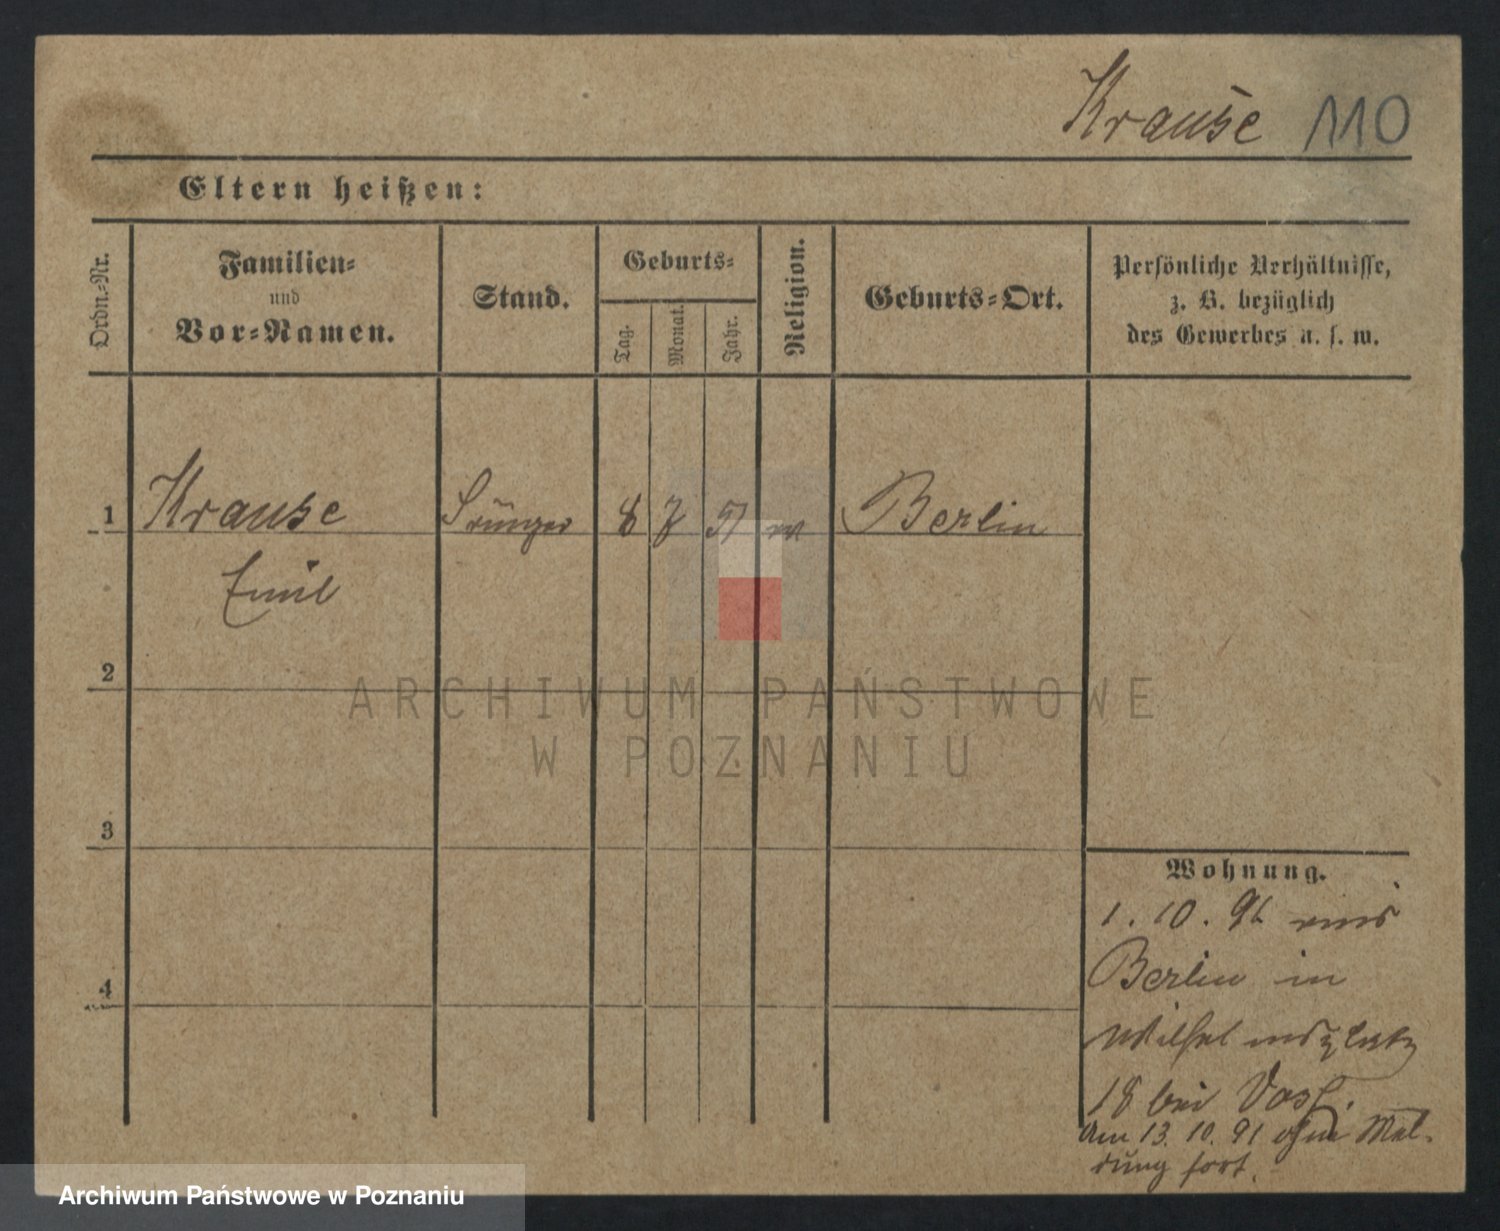 Krause 110
Eltern heißen:
Ordn.-Nr.
Familien-
und
Vor-Namen.
Stand.
Geburts-
Tag.
Monat.
Jahr.
Religion.
Geburts-Ort.
Persönliche Verhältnisse,
z. B. bezüglich
des Gewerbes u. s. w.
1 Krause 8 Berlin
Emil
2
3
4
Wohnung.
1. 10. 91 aus
Berlin in
Wilhelmsplatz
18 bei
Am 13. 10. 91 ohne Mel-
dung fort.
ARCHIWUM PAŃSTWOWE
W POZNANIU
Archiwum Państwowe w Poznaniu